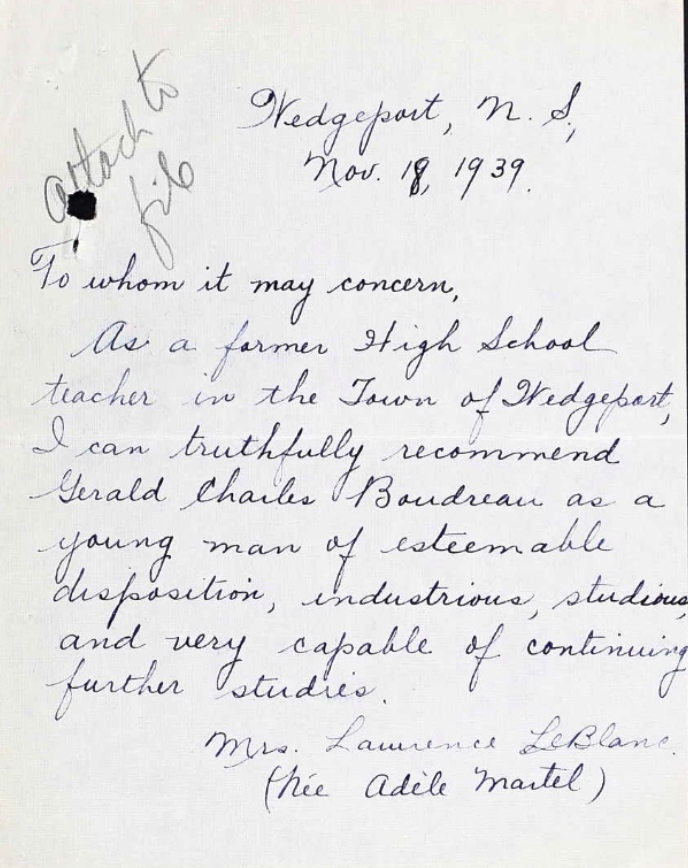 attach to
file
Wedgeport, N. S,
Nov. 18, 1939.
To whom it may concern,
As a former High School
teacher in the Town of Wedgeport,
I can truthfully recommend
Gerald Charles Boudreau as a
young man of esteemable
disposition, industrious, studious,
and very capable of continuing
further studies.
Mrs. Lawrence LeBlanc.
(Née Adèle Martel)